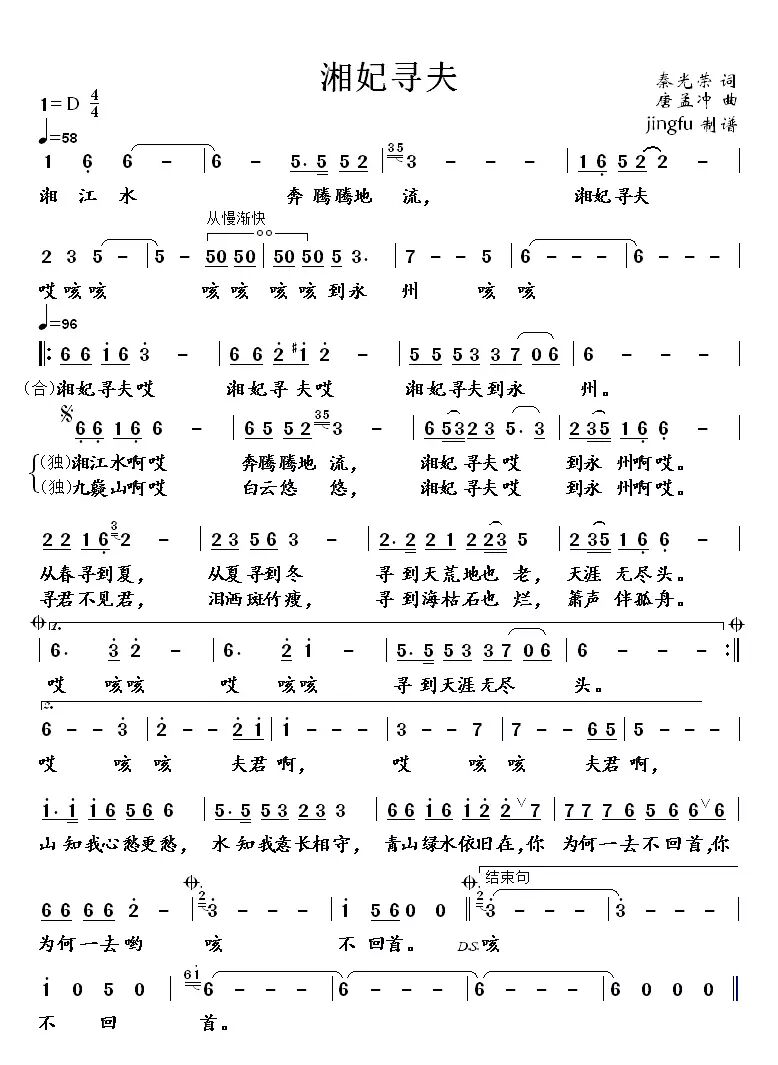 湘妃寻夫
秦光荣 词
1=D 4/4
唐孟冲 曲
♩=58
jingfu 制谱
1 6 6 - | 6 - 5. 5 5 2 | 35 3 - - - | 1 6 5 2 2 - |
湘 江 水 奔 腾腾地 流, 湘妃寻夫
从慢渐快
2 3 5 - | 5 - 50 50 | 50 50 5 3. | 7 - - 5 | 6 - - - | 6 - - |
哎咳咳 咳咳 咳咳到永 州 咳 咳
♩=96
‖: 6 6 1 6 3 - | 6 6 2 #1 2 - | 5 5 5 3 3 7 0 6 | 6 - - - |
(合)湘妃寻夫哎 湘妃寻 夫哎 湘妃寻夫到永 州。
6 6 1 6 6 - | 6 5 5 2 35 3 - | 6 53 23 5. 3 | 2 35 1 6 6 - |
(独)湘江水啊哎 奔腾腾地 流, 湘妃 寻夫哎 到永 州啊哎。
(独)九嶷山啊哎 白云悠 悠, 湘妃 寻夫哎 到永 州啊哎。
2 2 1 6 3 2 - | 2 3 5 6 3 - | 2. 2 2 1 2 23 5 | 2 35 1 6 6 - |
从春寻到夏, 从夏寻到冬 寻 到天荒地也 老, 天涯 无尽头。
寻君不见君, 泪洒斑竹瘦, 寻 到海枯石也 烂, 箫声 伴孤舟。
1.
| 6. 3 2 - | 6. 2 1 - | 5. 5 5 3 3 7 0 6 | 6 - - - :‖
哎 咳咳 哎 咳咳 寻 到天涯无尽 头。
2.
6 - - 3 | 2 - - 2 1 | 1 - - - | 3 - - 7 | 7 - - 6 5 | 5 - - - |
哎 咳 咳 夫君 啊, 哎 咳 咳 夫君啊,
1. 1 1 6 5 6 6 | 5. 5 5 3 2 3 3 | 6 6 1 6 1 2 2 ∨ 7 | 7 7 7 6 5 6 6 ∨ 6 |
山 知我心愁更愁, 水 知我意长相守, 青山绿水依旧在,你 为何一去不回首,你
结束句
6 6 6 6 2 - | 2 3 - - - | 1 5 6 0 0 ‖ 2 3 - - - | 3 - - - |
为何一去哟 咳 不 回首。 D.S. 咳
1 0 5 0 | 61 6 - - - | 6 - - - | 6 - - - | 6 0 0 0 ‖
不 回 首。